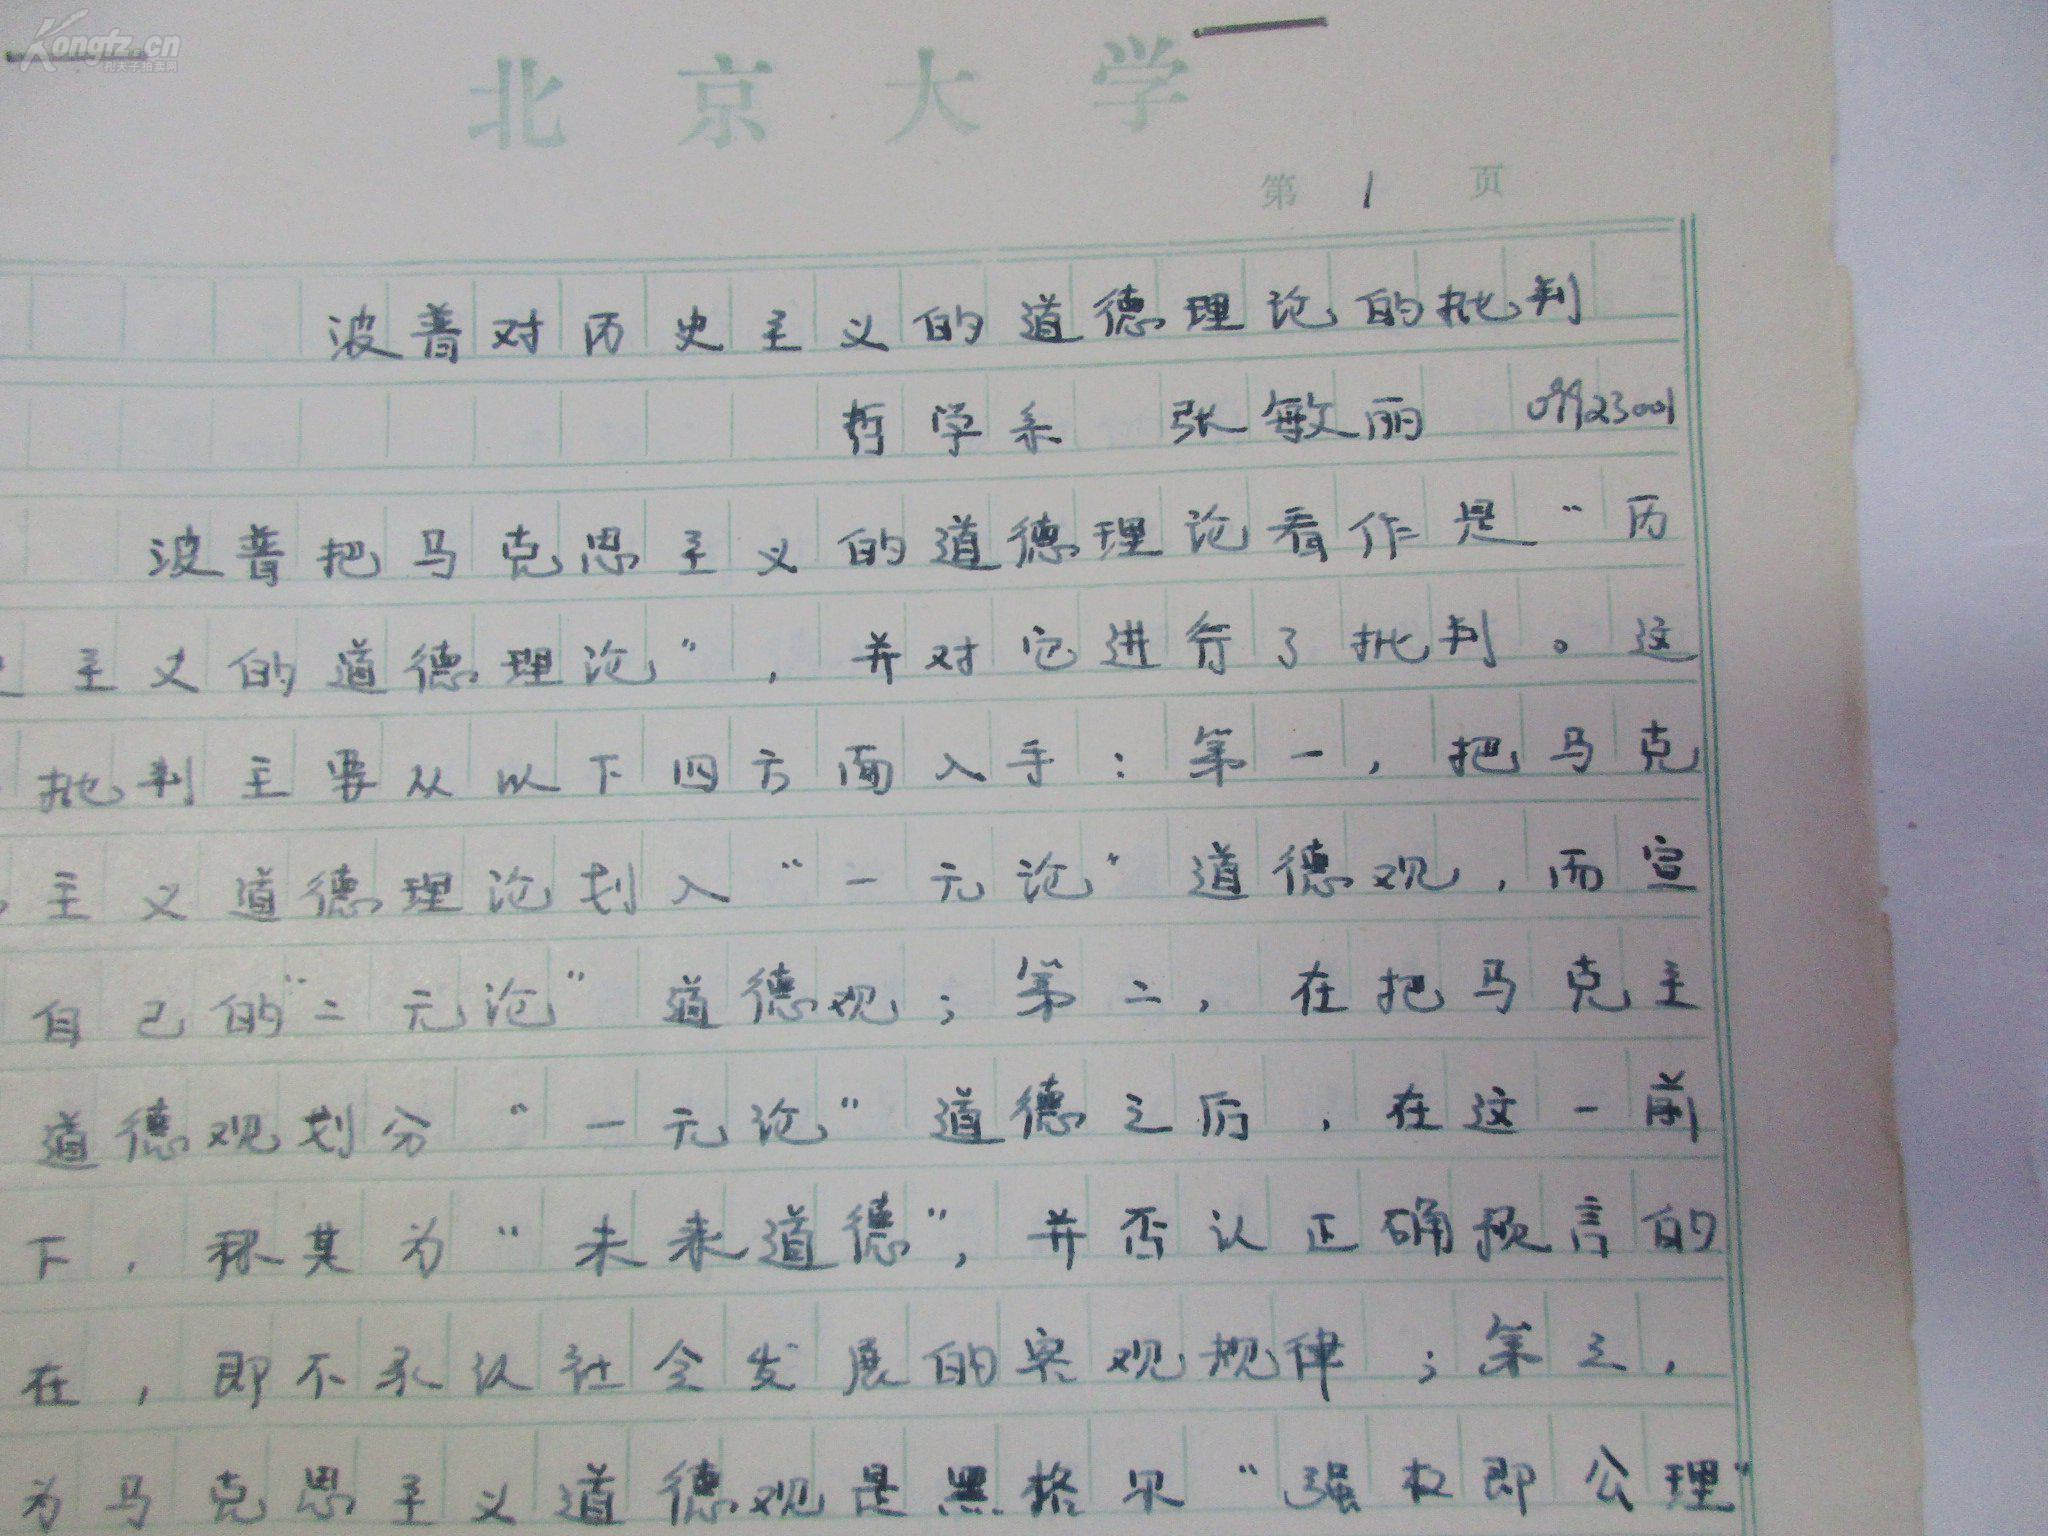 Kongfz.cn
孔夫子拍卖网
北京大学
第 1 页
波普对历史主义的道德理论的批判
哲学系 张敏丽 09923001
波普把马克思主义的道德理论看作是“历
史主义的道德理论”,并对它进行了批判。这
批判主要从以下四方面入手:第一,把马克
主义道德理论划入“一元论”道德观,而宣
自己的“二元论”道德观;第二,在把马克主
道德观划分“一元论”道德之后,在这一前
下,称其为“未来道德”,并否认正确预言的
在,即不承认社会发展的客观规律;第三,
为马克思主义道德观是黑格尔“强权即公理”